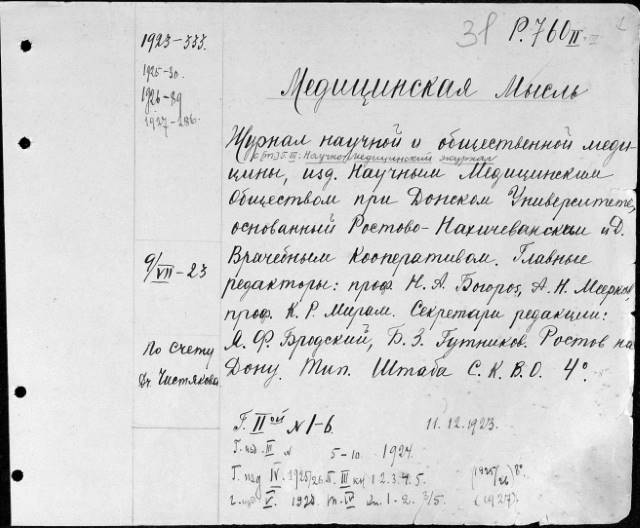 31 P.760 II
1923-555.
1925-30.
1926-89
1927-286.
Медицинская Мысль
Журнал научной и общественной меди-
с(т) Г. III: Научно-медицинский журнал
цины, изд. Научным Медицинским
Обществом при Донском Университете,
основанный Ростово-Нахичеванским н/Д.
9/VII-23
Врачебным Кооперативом. Главные
редакторы: проф. Н. А. Богораз, А. Н. Меерков,
проф. К. Р. Мирам. Секретари редакции:
По счету
Я. Ф. Бродский, Б. З. Гутников. Ростов на
Др. Чистякова
Дону. Тип. Штаба С. К. В. О. 4°.
Г. IIой N 1-6. 11. 12. 1923.
Г. изд. III N 5-10. 1924.
Г. изд IV. 1925/26. т. III кн 1. 2. 3. 4. 5. (1925/26) 8°
г. изд V. 192 т. IV 1-2. 3/5. (1927).